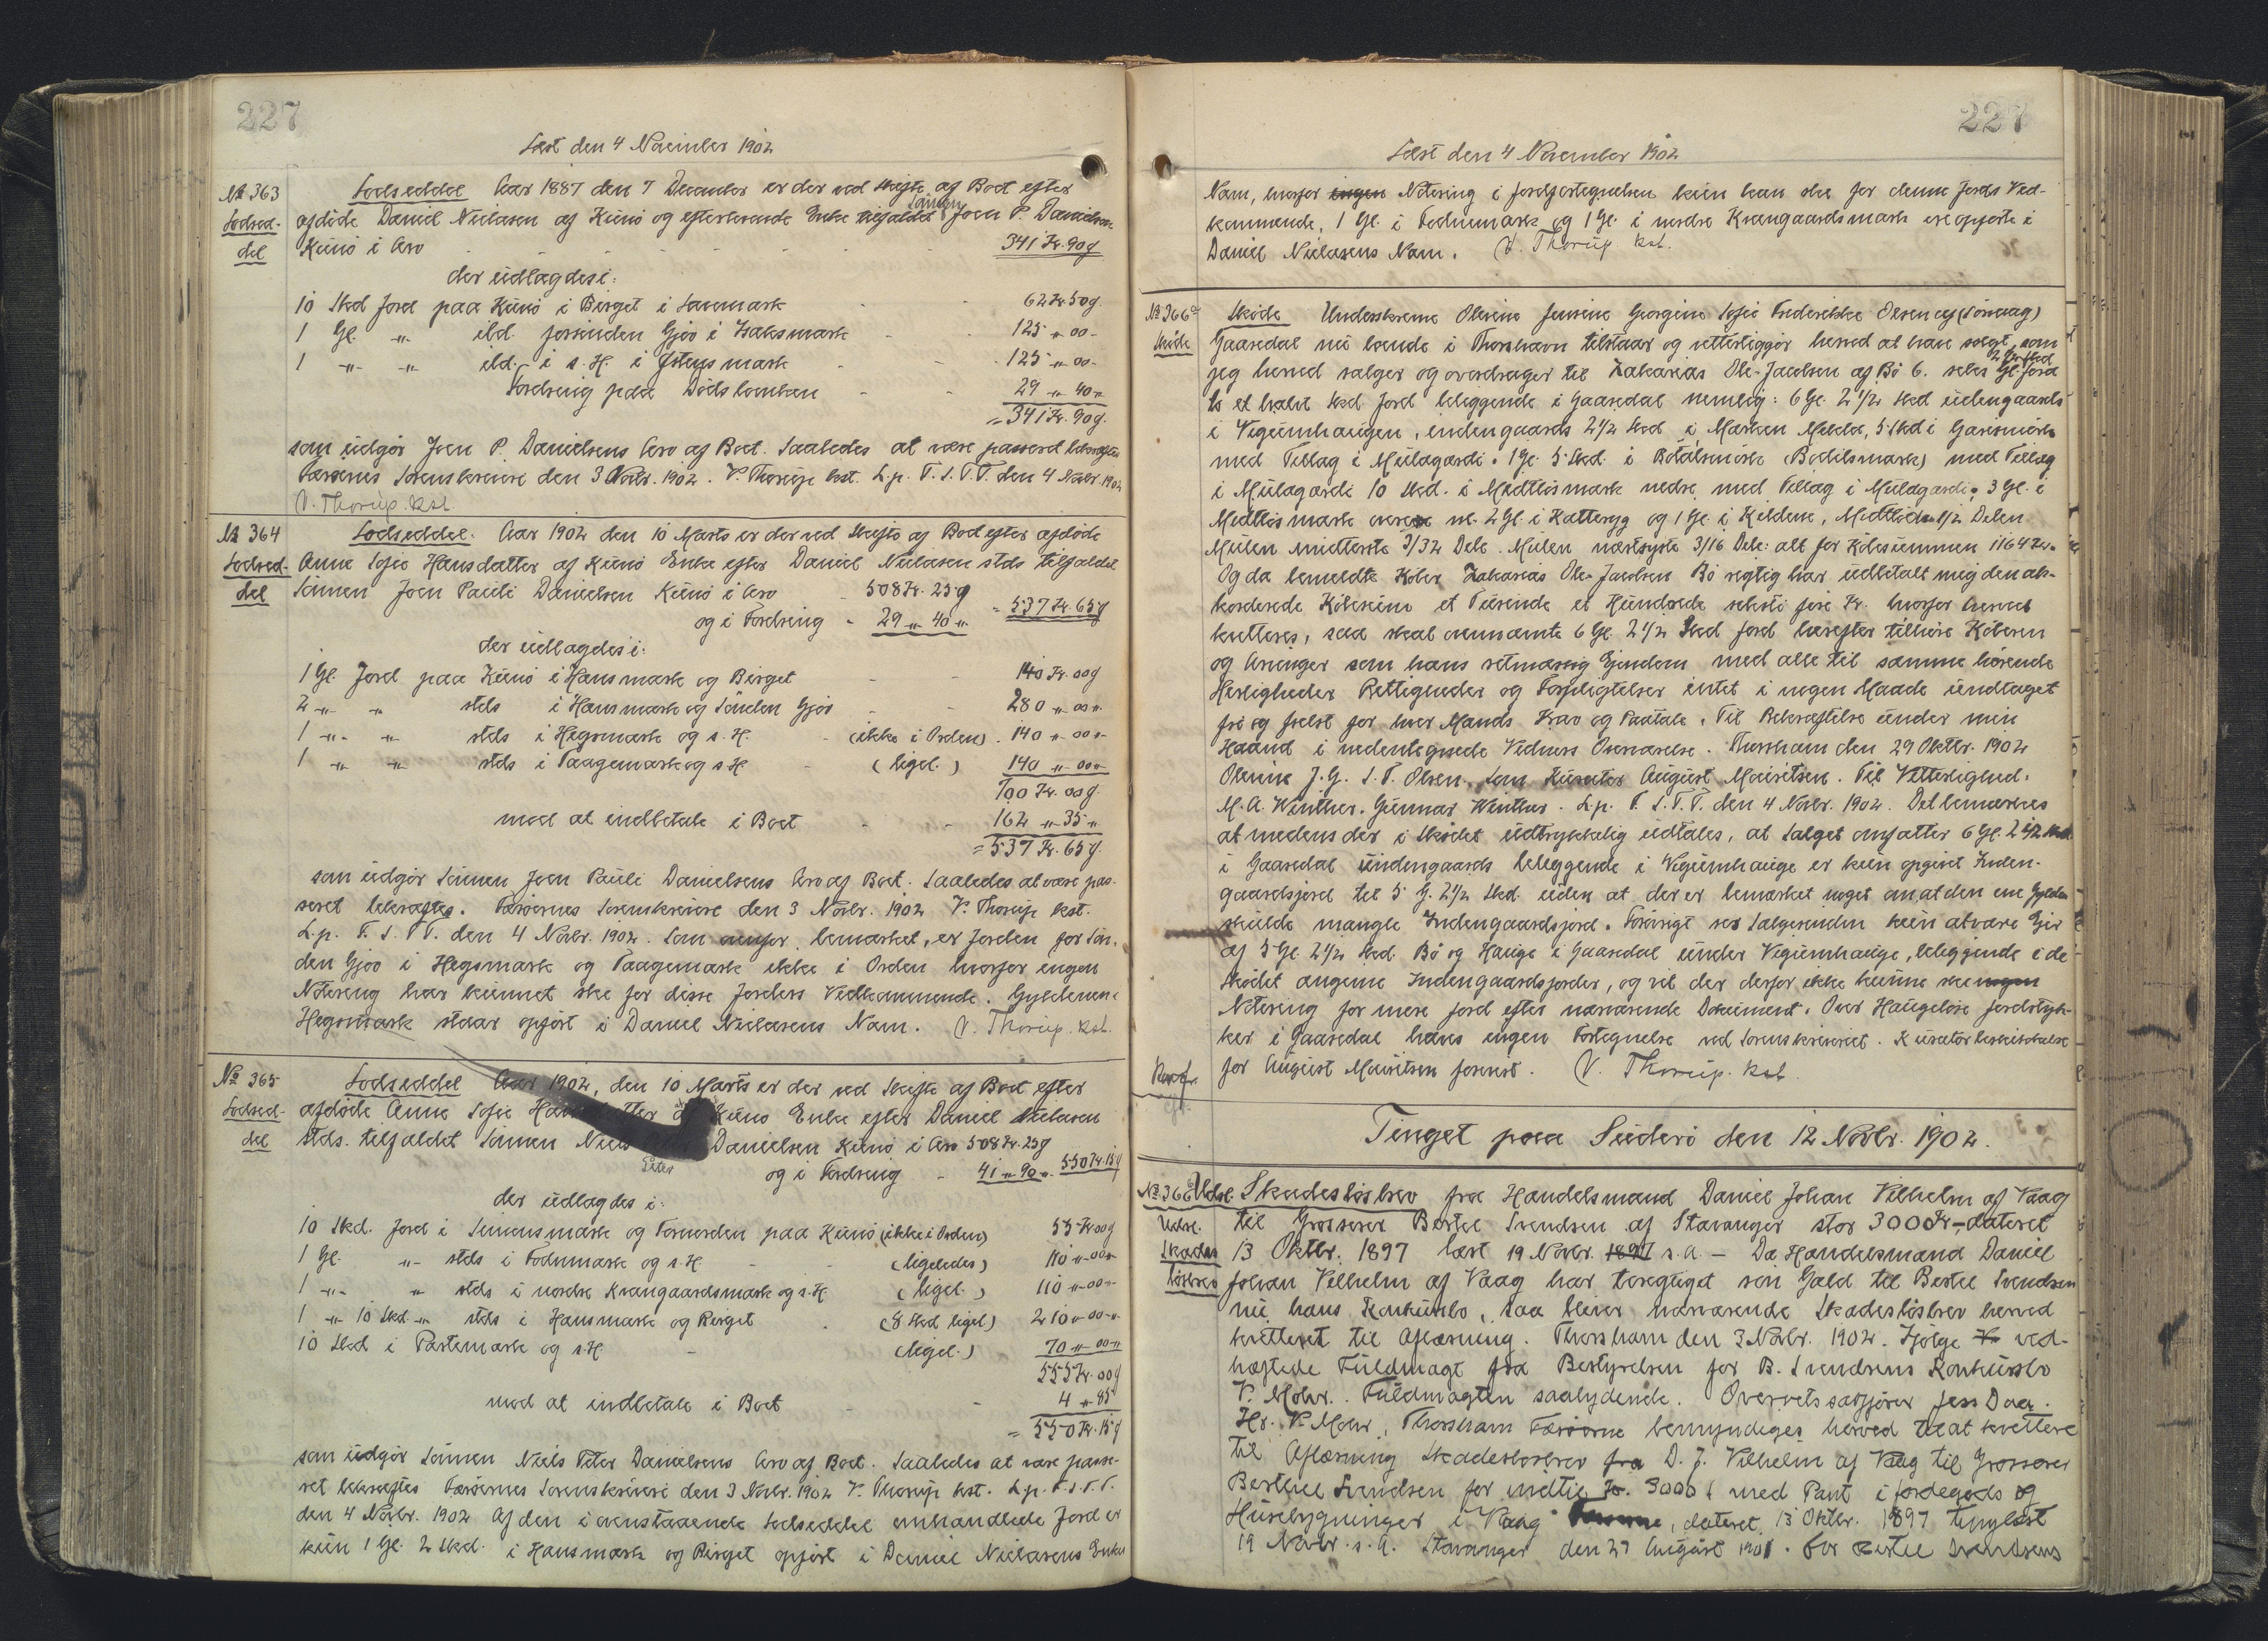 227
Læst den 4 November 1902
No 363
Lodsed-
del
Lodseddel Aar 1887 den 7 December er der ved Skifte af Boet efter
afdöde Daniel Nielasen af Kunö og efterlevende Enke tilfaldet Sönnen Joen P. Danielsen
Kunö i Arv 341 Kr. 90 ø
der udlagdes i:
10 Skd Jord paa Kunö i Birget i Suemark 62 Kr. 50 ø.
1 Gl. -"- ibd. forinden Gjöv i Haksmark 125 " 00 -
1 -"- -"- ibd. i s. H. i Ystegsmark 125 " 00 -
Fordring paa Dödsboenken 29 " 40 "
= 341 Kr. 90 ø.
som udgör Joen P. Danielsens Arv af Boet. Saaledes at være passeret bekræftes
Færöernes Sorenskriveri den 3 Novbr. 1902. V. Thorup kst. L.p. F. S. T. T. den 4 Novbr. 1902
V. Thorup. kst.
No 364
Lodsed-
del
Lodseddel. Aar 1902 den 10 Marts er der ved Skifte af Boet efter afdöde
Anne Sofie Hansdatter af Kunö Enke efter Daniel Nielasen stds tilfaldet
Sönnen Joen Pauli Danielsen Kunö i Arv - 508 Kr. 25 ø
og i Fordring - 29 " 40 " = 537 Kr. 65 ø
der udlagdes i:
1 Gl. Jord paa Kunö i Hansmark og Birget 140 Kr. 00 ø
2 -"- -"- stds i Hansmark og Sönden Gjöv 280 " 00 "
1 -"- -"- stds i Hegsmark og s. H. (ikke i Orden) 140 " 00 "
1 -"- -"- stds i Taagemark og s H. (ligel.) 140 " 00 "
700 Kr. 00 ø.
mod at indbetale i Boet 162 " 35 "
= 537 Kr. 65 ø.
som udgör Sönnen Joen Pauli Danielsens Arv af Boet. Saaledes at være pas-
seret bekræftes. Færöernes Sorenskriveri den 3 Novbr. 1902 V. Thorup kst.
L.p. F. S. T T. den 4 Novbr. 1902. Som ovenfor bemærket, er Jorden for Sön-
den Gjöv i Hegsmark og Taagemark ikke i Orden hvorfor ingen
Notering har kunnet ske for disse Jorders Vedkommende. Gyldenen i
Hegsmark staar opfört i Daniel Nielasens Navn. V. Thorup. kst.
No 365
Lodsed-
del
Lodseddel Aar 1902, den 10 Marts er der ved Skifte af Boet efter
afdöde Anne Sofie af Kunö Enke efter Daniel Nielasen
stds. tilfaldet Sönnen Niels Danielsen Kunö i Arv 508 Kr. 25 ø
Peter
og i Fordring - 41 " 90 " 550 Kr. 15 ø
der udlagdes i:
10 Skd. Jord i Simunsmark og Fornorden paa Kunö (ikke i Orden) 55 Kr. 00 ø
1 Gl. -"- stds i Todnmark og s. H. (ligeledes) 110 " 00 "
1 -"- " stds i nordre Krangaardsmark og s. H (ligel.) 110 " 00 "
1 -"- 10 Skd -"- stds i Hansmark og Birget (8 Skd ligel) 210 " 00 "
10 Skd i Partemark og s. H (ligel.) 70 " 00 "
555 Kr. 00 ø
mod at indbetale i Boet 4 " 85
= 550 Kr. 15 ø
som udgör Sönnen Niels Peter Danielsens Arv af Boet. Saaledes at være passe-
ret bekræftes Færöernes Sorenskriveri den 3 Novbr. 1902 V. Thorup kst. L.p. F. S. T. T.
den 4 Novbr. 1902 Af den i ovenstaaende Lodseddel omhandlede Jord er
kun 1 Gl. 2 Skd. i Hansmark og Birget opfört i Daniel Nielasens Enkes
227
Læst den 4 November 1902
Navn, hvorfor ingen Notering i Jordfortegnelsen kun kan ske for denne Jords Ved-
kommende, 1 Gl. i Todnmark og 1 Gl. i nordre Krangaardsmark ere opförte i
Daniel Nielasens Navn. V. Thorup kst.
No 366a
Sköde
Sköde Underskrevne Olevine Jensine Georgine Sofie Frederikke Olsen af (Sörvaag)
Gaasedal nu boende i Thorshavn tilstaar og vitterliggjör herved at have solgt, som
jeg herved sælger og overdrager til Zakarias Ole-Jacobsen af Bö 6. seks Gl. Jord
2 1/2 Skd
to et halvt Skd Jord beliggende i Gaasedal nemlig: 6 Gl. 2 1/2 Skd udengaards
i Vegumhaugen, indengaards 2 1/2 Skd i Marken 5 Skd i Garsmörk
med Tillag i Mulagærdi. 1 Gl. 5 Skd. i Botålsmörk (Bodilsmark) med Tillæg
i Mulagærdi 10 Skd. i Medtlösmark nedre med Tillag i Mulagærdi, 3 Gl. i
Medtlösmark övre nl. 2 Gl. i Katteryg og 1 Gl. i Keldene, 1/2 Delen
Mulen midterste 3/32 Dele. Mulen nordsyste 3/16 Dele: alt for Köbesummen 1164 Kr.
Og da bemeldte Köber Zakarias Ole-Jacobsen Bö rigtig har udbetalt mig den ak-
korderede Köbesum et Tusende et Hundrede seksti fire Kr. hvorfor herved
kvitteres, saa skal ovennævnte 6 Gl. 2 1/2 Skd Jord herefter tilhöre Köberen
og Arvinger som hans retmæssig Ejendom med alle til samme hörende
Herligheder Rettigheder og Forpligtelser intet i nogen Maade undtaget
fri og frelst for hver Mands Krav og Paatale. Til Bekræftelse under min
Haand i nedentegnede Vidners Overværelse. Thorshavn den 29 Oktbr. 1902
Olevine J. G. S. F. Olsen. Som Kurator August Mouritsen. Til Vitterlighed:
M. A. Winther. Gunnar Winther. L.p. F. S. T. T. den 4 Novbr. 1902. Det bemærkes
at medens der i Sködet udtrykkelig udtales, at Salget omfatter 6 Gl. 2 1/2 Skd
i Gaasedal undengaards beliggende i Vegumhauge er kun opgivet Inden-
gaardsjord til 5 G. 2 1/2 Skd. uden at der er bemærket noget om at den ene Gylden
skulde mangle Indengaardsjord. Forövrigt ses Sælgerinden kun at være Ejer
af 5 Gl. 2 1/2 Skd. Bö og Hauge i Gaasedal under Vegumhauge, beliggende i de
Sködet angivne Indengaardsjorder, og vil der derfor ikke kunne ske nogen
Notering for mere Jord efter nærværende Dokument. Over Haugelöse Jordstyk-
ker i Gaasedal haves ingen Fortegnelse ved Sorenskriveriet. Kuratorbeskikkelse
for August Mouritsen forevist. V. Thorup. kst.
Tinget paa Suderö den 12 Novbr. 1902.
No 366b
Udsl.
Skades
lösbrev
Udsl. Skadeslösbrev fra Handelsmand Daniel Johan Vilhelm af Vaag
til Grosserer Bertel Svendsen af Stavanger stor 3000 Kr - dateret
13 Oktbr. 1897 læst 19 Novbr. 1897 s. A. - Da Handelsmand Daniel
Johan Vilhelm af Vaag har berigtiget sin Gæld til Bertel Svendsen
nu hans Konkursbo, saa bliver nærværende Skadeslösbrev herved
kvitteret til Aflæsning. Thorshavn den 3 Novbr. 1902. Ifølge ved-
hæftede Fuldmagt fra Bestyrelsen for B. Svendsens Konkursbo
V. Mohr. Fuldmagten saalydende. Overretssagförer Jess Daa.
Hr. V. Mohr, Thorshavn Færöerne bemyndiges herved til at kvittere
til Aflæsning Skadeslosbrev fra D. J. Vilhelm af Vaag til Grosserer
Bertel Svendsen for indtil Kr. 3000 med Pant i Jordegods og
Husebygninger i Vaag , dateret 13 Oktbr. 1897 tinglæst
19 Novbr. s. A. Stavanger den 27 August 1901. for Bertel Svendsens